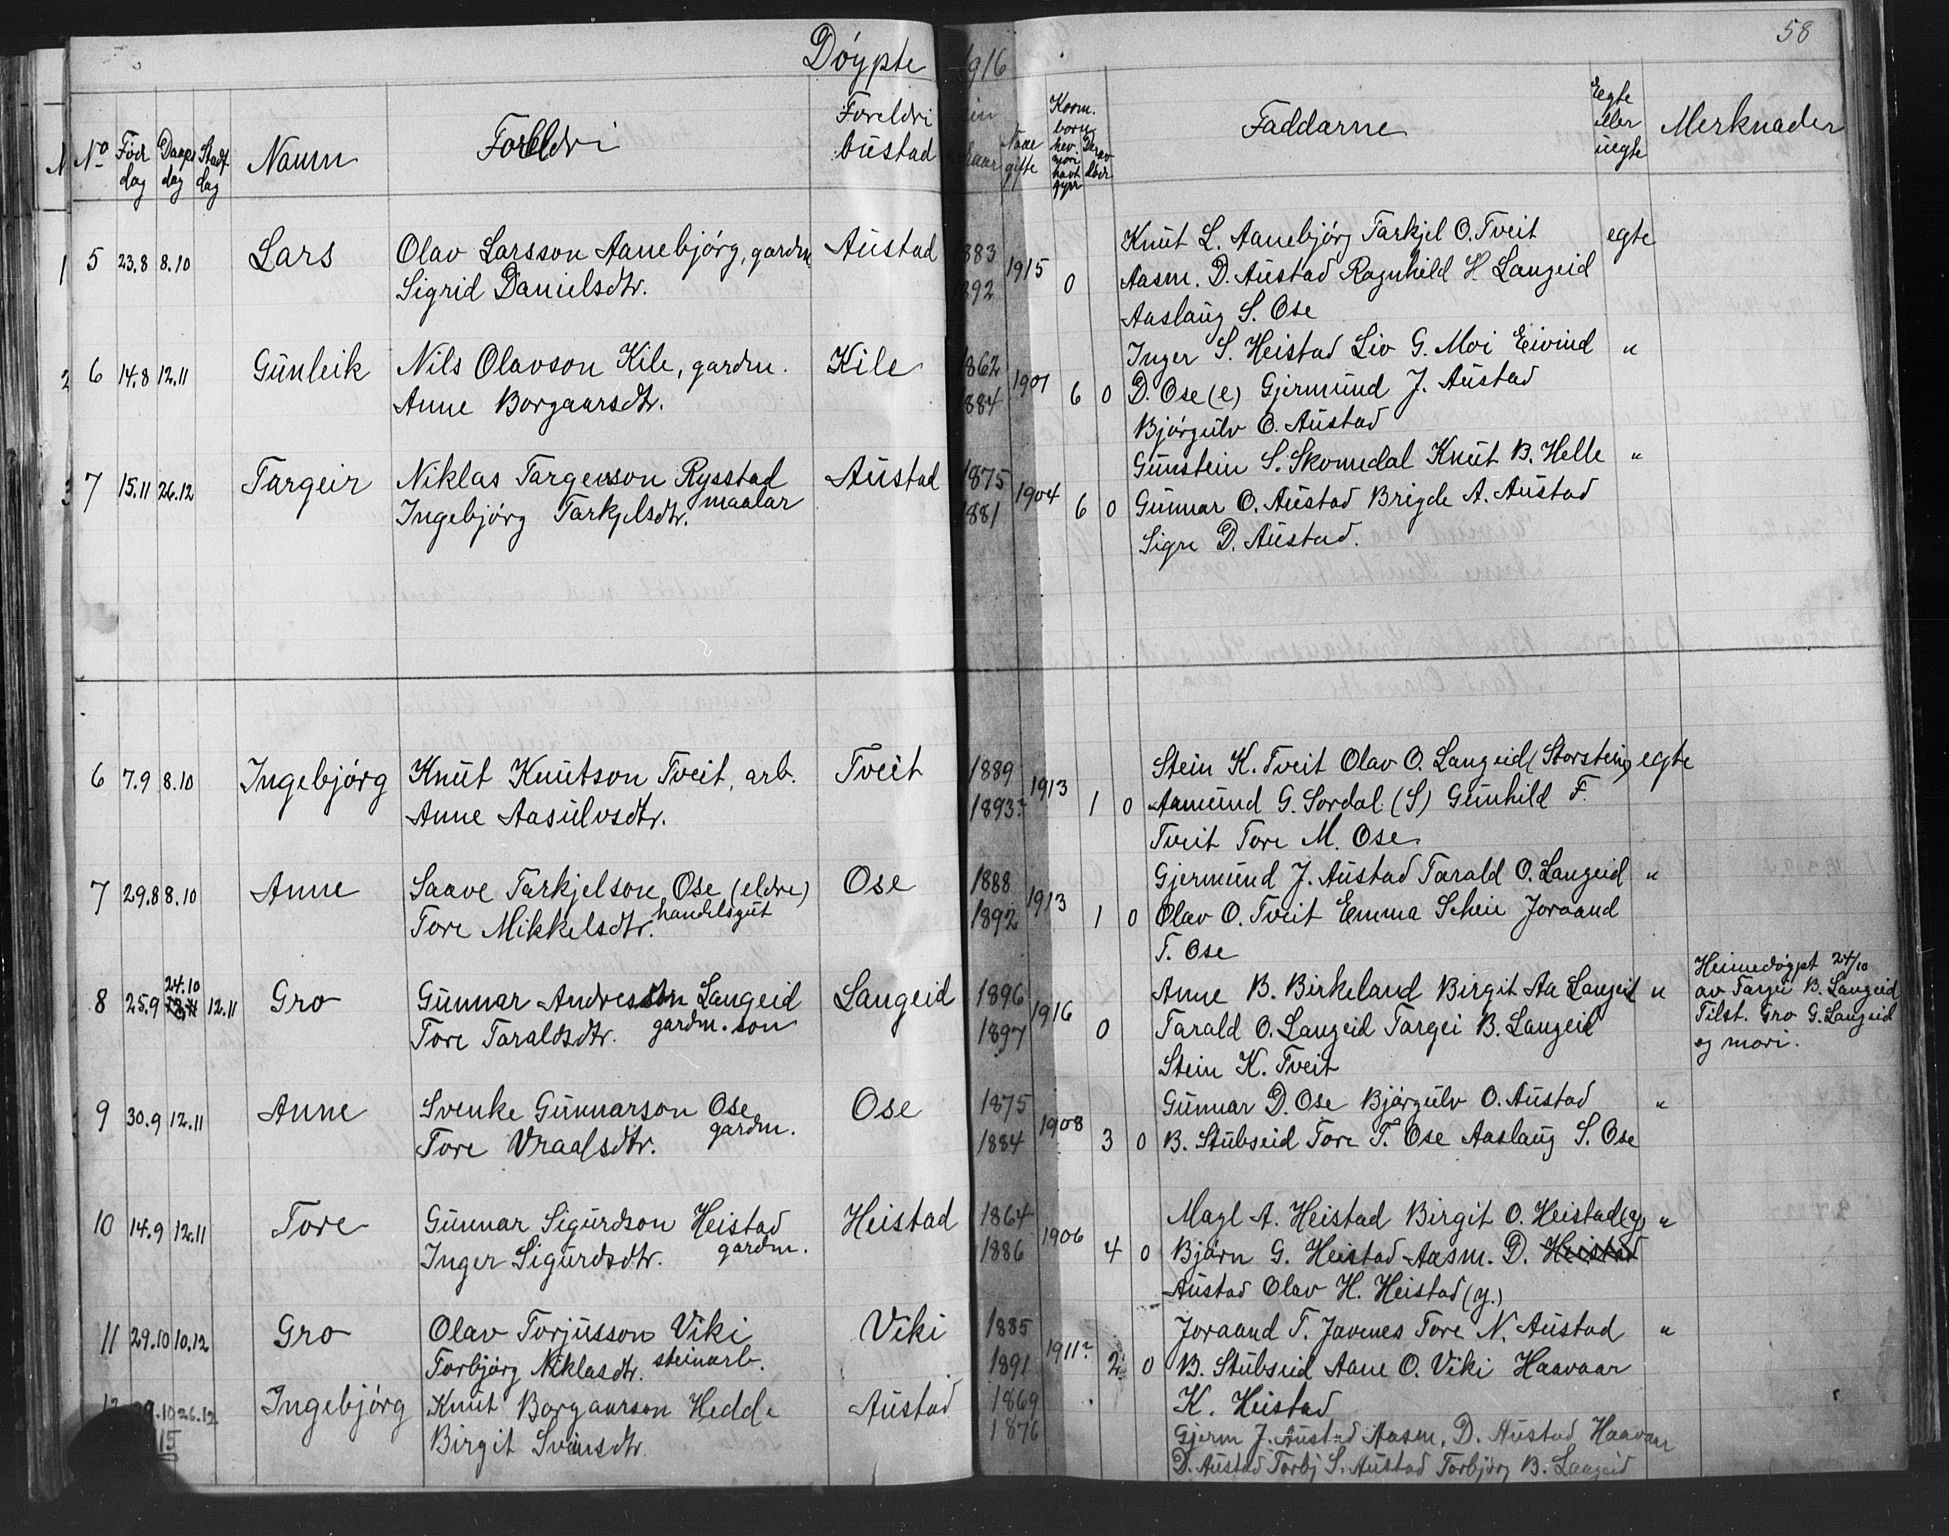 58
Döypte 1916
No Fød dag Daaps dag Stadf. dag Namn Foreldri Foreldri bustad Naar gifte Faddarne Egte eller uegte Merknader
5 23.8 8.10 Lars Olav Larsson Aanebjörg, gardm. Austad 1883 1915 0 Knut L. Aanebjörg Tarkjel O. Tveit egte
Sigrid Danielsdtr. 1892 Aasm. D. Austad Ragnhild H. Langeid
Aaslaug S. Ose
6 14.8 12.11 Gunleik Nils Olavson Kile, gardm. Kile 1862 1901 6 0 Inger S. Heistad Liv G. Moi Eivind "
Anne Borgaarsdtr. 1884 D. Ose (e) Gjermund J. Austad
Bjórgulv O. Austad
7 15.11 26.12 Targeir Niklas Targeirson Rysstad Austad 1875 1904 6 0 Gunstein S. Skomedal Knut B. Helle "
maalar
Ingebjörg Tarkjelsdtr. 1881 Gunnar O. Austad Brigde A. Austad
Signe D. Austad.
6 7.9 8.10 Ingebjórg Knut Knutson Tveit, arb. Tveit 1889 1913 1 0 Stein K. Tveit Olav O. Langeid (Storstein) egte
Anne Aasulvsdtr. 1893? Aamund G. Sordal (S) Gunhild F.
Tveit Tore M. Ose
7 29.8 8.10 Anne Saave Tarkjelson Ose (eldre) Ose 1888 1913 1 0 Gjermund J. Austad Tarald O. Langeid "
handelsgut
Tore Mikkelsdtr. 1892 Olav O. Tveit Emma Scheie Joraand
T. Ose
8 25.9 24.10 12.11 Gro Gunnar Andresson Langeid Langeid 1896 1916 0 Anne B. Birkeland Birgit Aa Langeid " Heimedöypt 24/10
av Targei B. Langeid
gardm. son
Tore Taraldsdtr. 1897 Tarald O. Langeid Targei B. Langeid Tilst. Gro G. Langeid
og mori.
Stein K. Tveit
9 30.9 12.11 Anne Svenke Gunnarson Ose Ose 1875 1908 3 0 Gunnar D. Ose Bjórgulv O. Austad "
gardm.
Tore Vraalsdtr. 1884 B. Stubseid Tore T. Ose Aaslaug S. Ose
10 14.9 12.11 Tore Gunnar Sigurdson Heistad Heistad 1864 1906 4 0 Magl A. Heistad Birgit O. Heistad (y) "
gardm.
Inger Sigurdsdtr. 1886 Bjórn G. Heistad Aasm. D. Heistad
Austad Olav H. Heistad (y.)
11 29.10 10.12 Gro Olav Torjusson Viki Viki 1885 1911? 2 0 Joraand T. Javenes Tore N. Austad "
steinarb.
Torbjörg Niklasdtr. 1891 B. Stubseid Aane O. Viki Haavaar
K. Heistad
26.12 Ingebjörg Knut Borgaarson Hedde Austad 1869 Gjerm J. Austad Aasm. D. Austad Haavaar
Birgit Sveinsdtr. 1876 D. Austad Torbj S. Austad Torbjörg B. Langeid
15